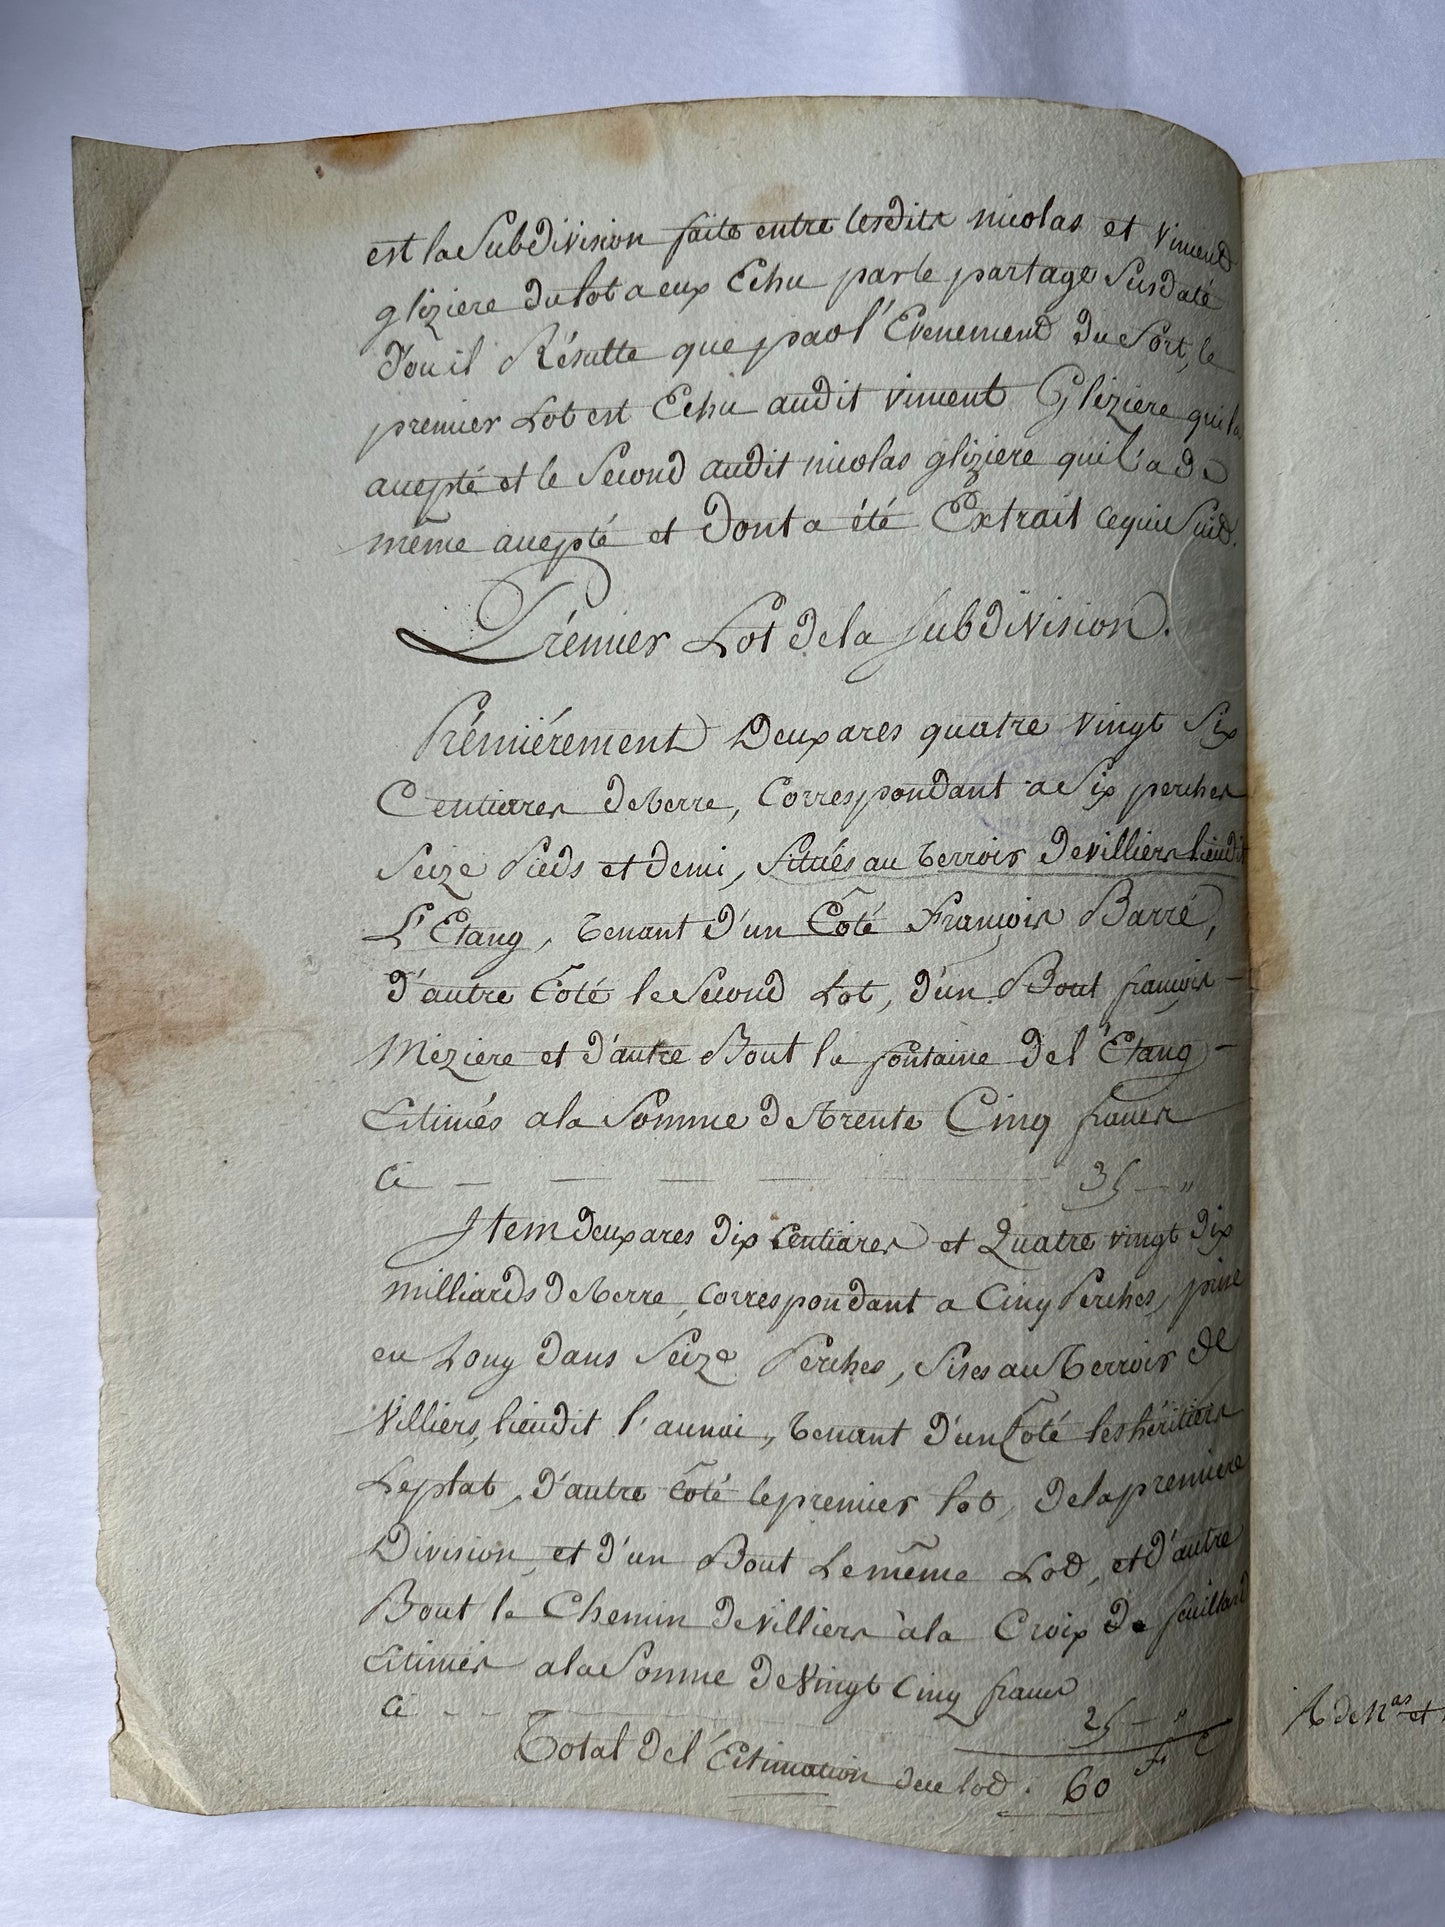 est la Subdivision faite entre lesdits nicolas et Vincent
gliziere du lot a eux Echu par le partage Susdaté
d'ou il Résulte que par l'Evenement du Sort, le
premier Lot est Echu audit vincent Gliziere qui l'a
accepté et le Second audit nicolas gliziere qui l'a de
même accepté et dont a été Extrait ce qui Suit.
Prémier Lot de la Subdivision.
Prémiérement Deux ares quatre vingt Six
Centiares de terre, Correspondant a Six perches
Seize Pieds et demi, Situés au terroir de villiers lieudit
L'Etang, tenant d'un Côté François Barré,
d'autre Côté le Second Lot, d'un Bout françois
Méziere et d'autre Bout la fontaine de l'Etang
Estimés a la Somme de trente Cinq francs
Ci 35 — "
Item deux ares dix Centiares et Quatre vingt dix
milliards de terre, Correspondant a Cinq Perches, prise
en Long dans Seize Perches, Sises au terroir de
Villiers, lieudit l'aunai, tenant d'un Côté les héritiers
Leplat, d'autre Côté le premier lot, de la premiere
Division, et d'un Bout Le même Lot, et d'autre
Bout le Chemin de villiers à la Croix de feuillard
Estimés a la Somme de Vingt Cinq francs
Ci 25 — "
Total de l'Estimation du lot. 60 F C
N.as et